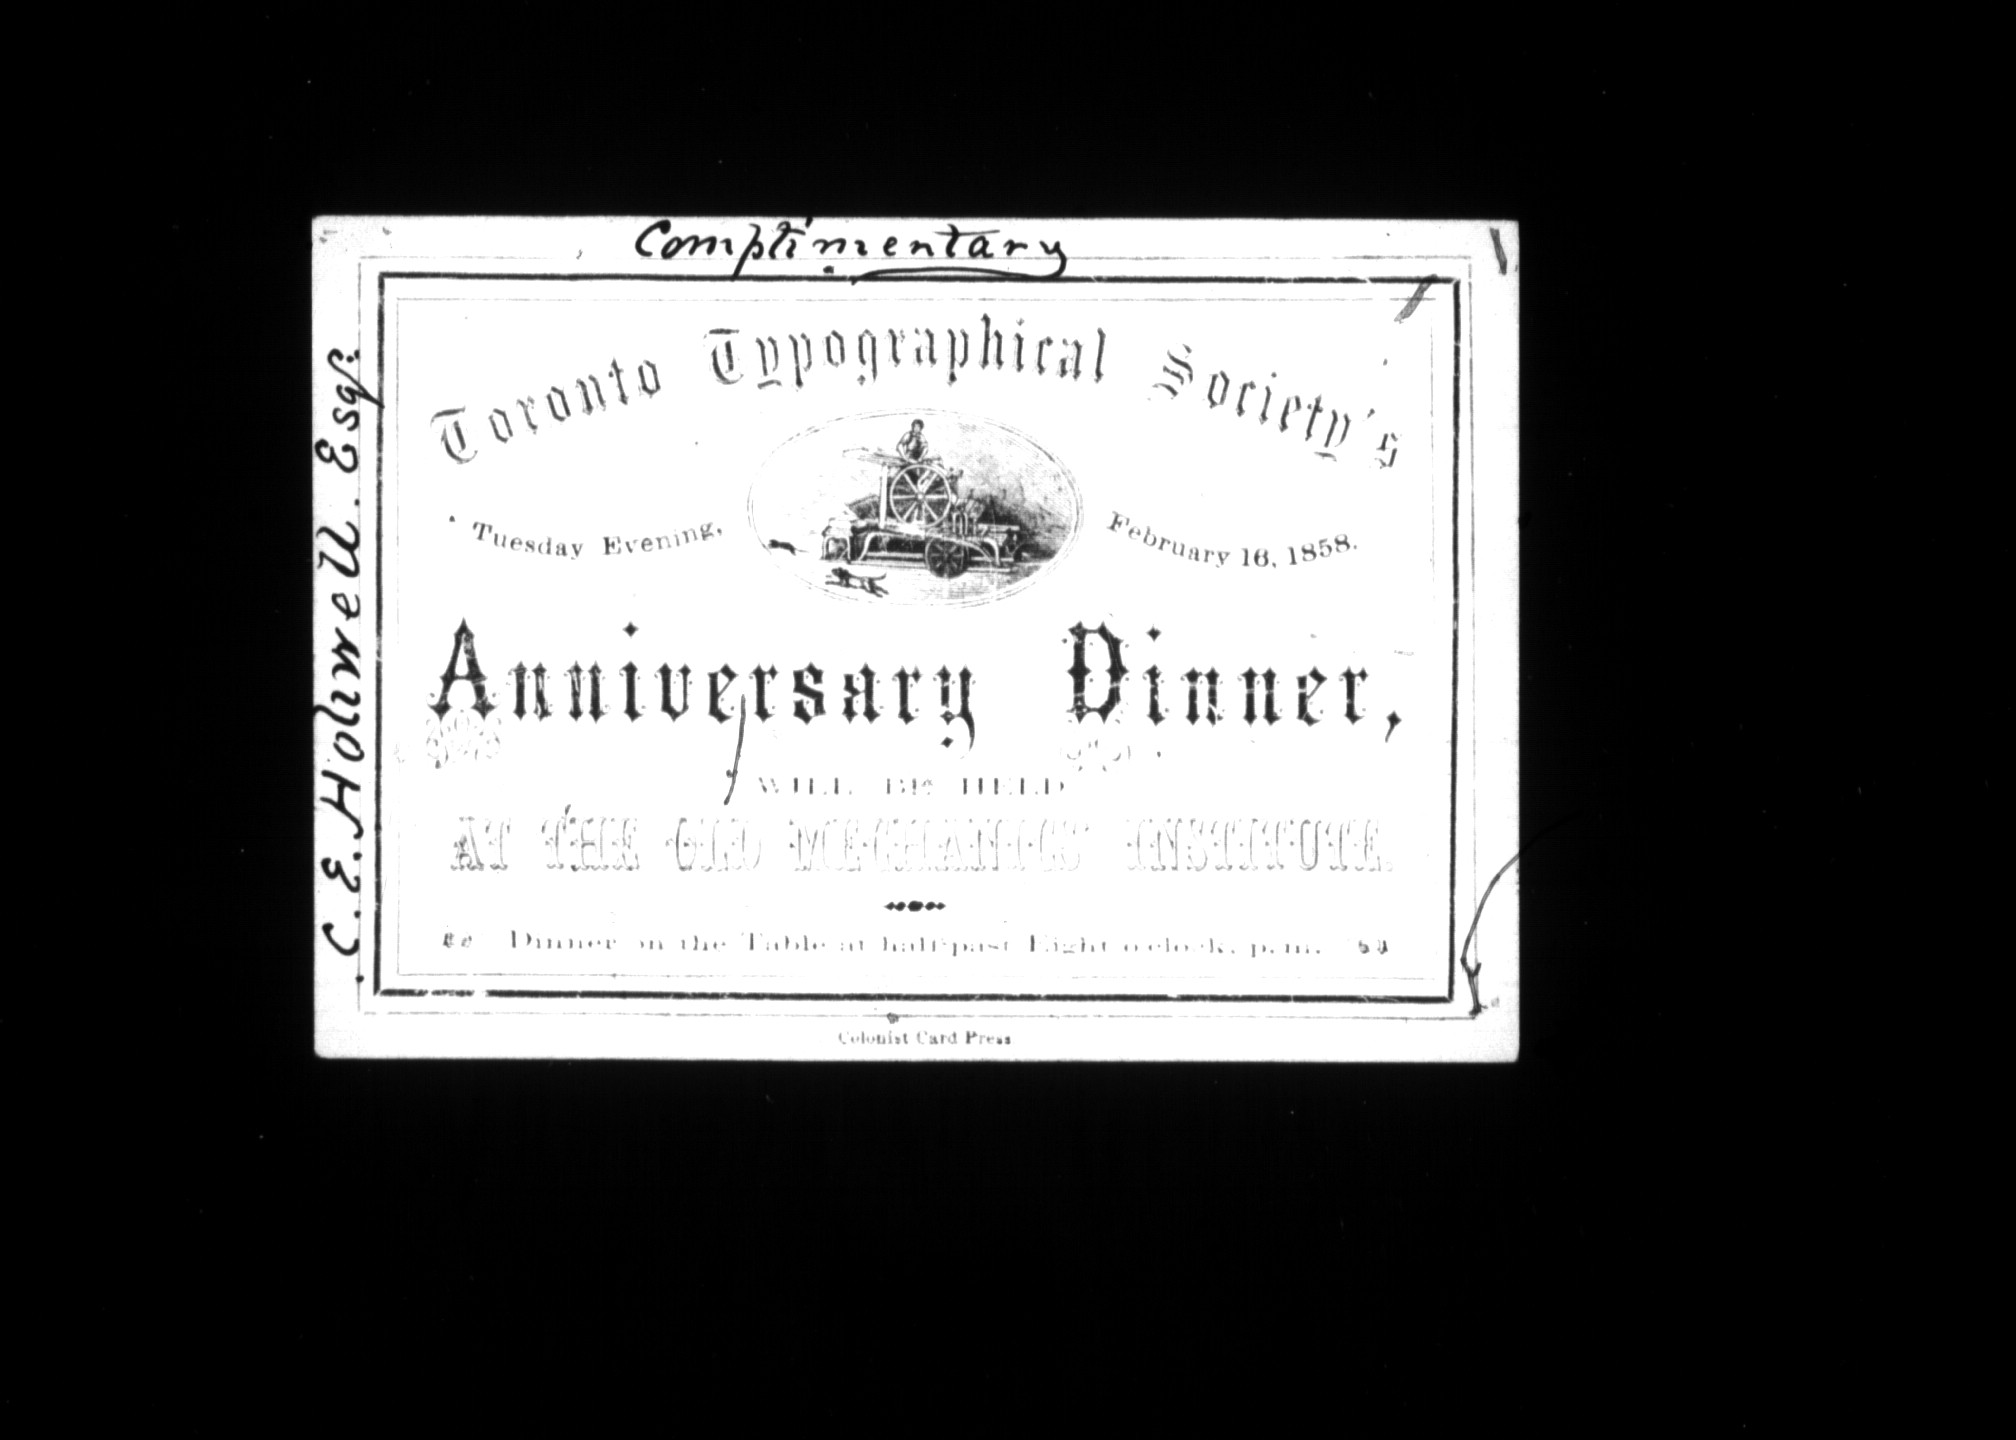 Complimentary
C. E. Holiwell. Esq.
Toronto Typographical Society's
Tuesday Evening,
February 16, 1858.
Anniversary Dinner,
WILL BE HELD
AT THE OLD MECHANICS' INSTITUTE.
Dinner on the Table at half-past Eight o'clock, p. m.
Colonist Card Press